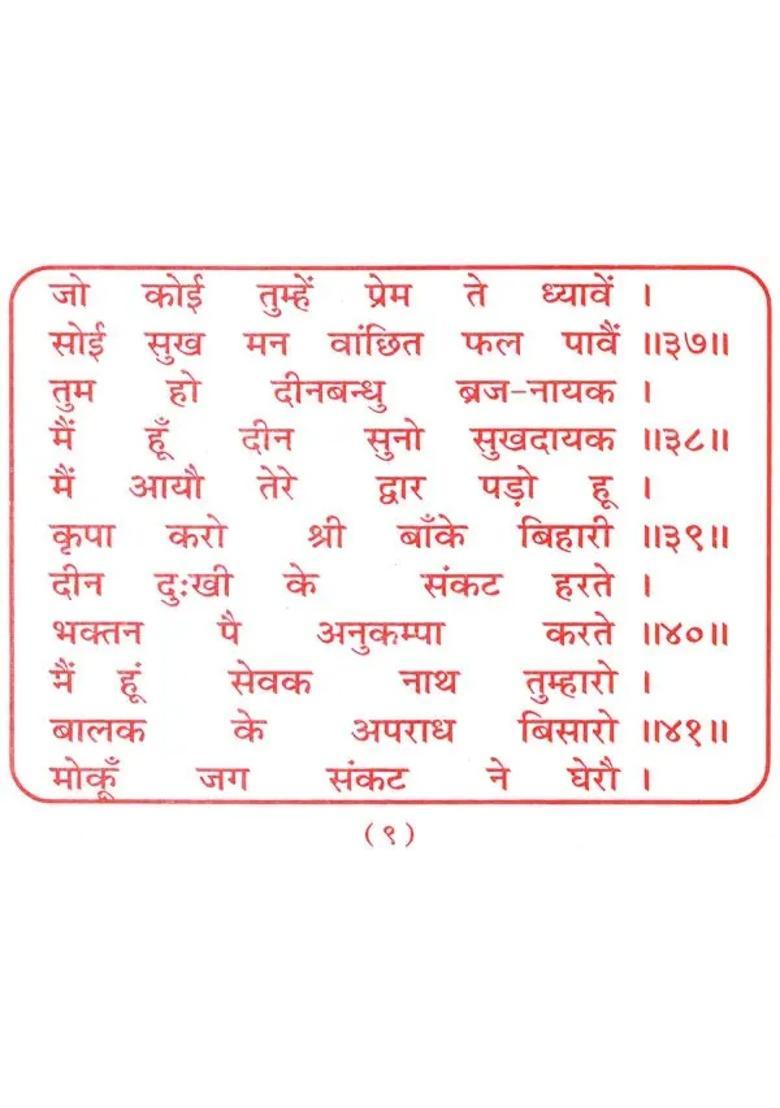 जो कोई तुम्हें प्रेम ते ध्यावें ।
सोई सुख मन वांछित फल पावैं ॥३७॥
तुम हो दीनबन्धु ब्रज-नायक ।
मैं हूँ दीन सुनो सुखदायक ॥३८॥
मैं आयौ तेरे द्वार पड़ो हू ।
कृपा करो श्री बाँके बिहारी ॥३९॥
दीन दुःखी के संकट हरते ।
भक्तन पै अनुकम्पा करते ॥४०॥
मैं हूं सेवक नाथ तुम्हारो ।
बालक के अपराध बिसारो ॥४१॥
मोकूँ जग संकट ने घेरौ ।
(९)